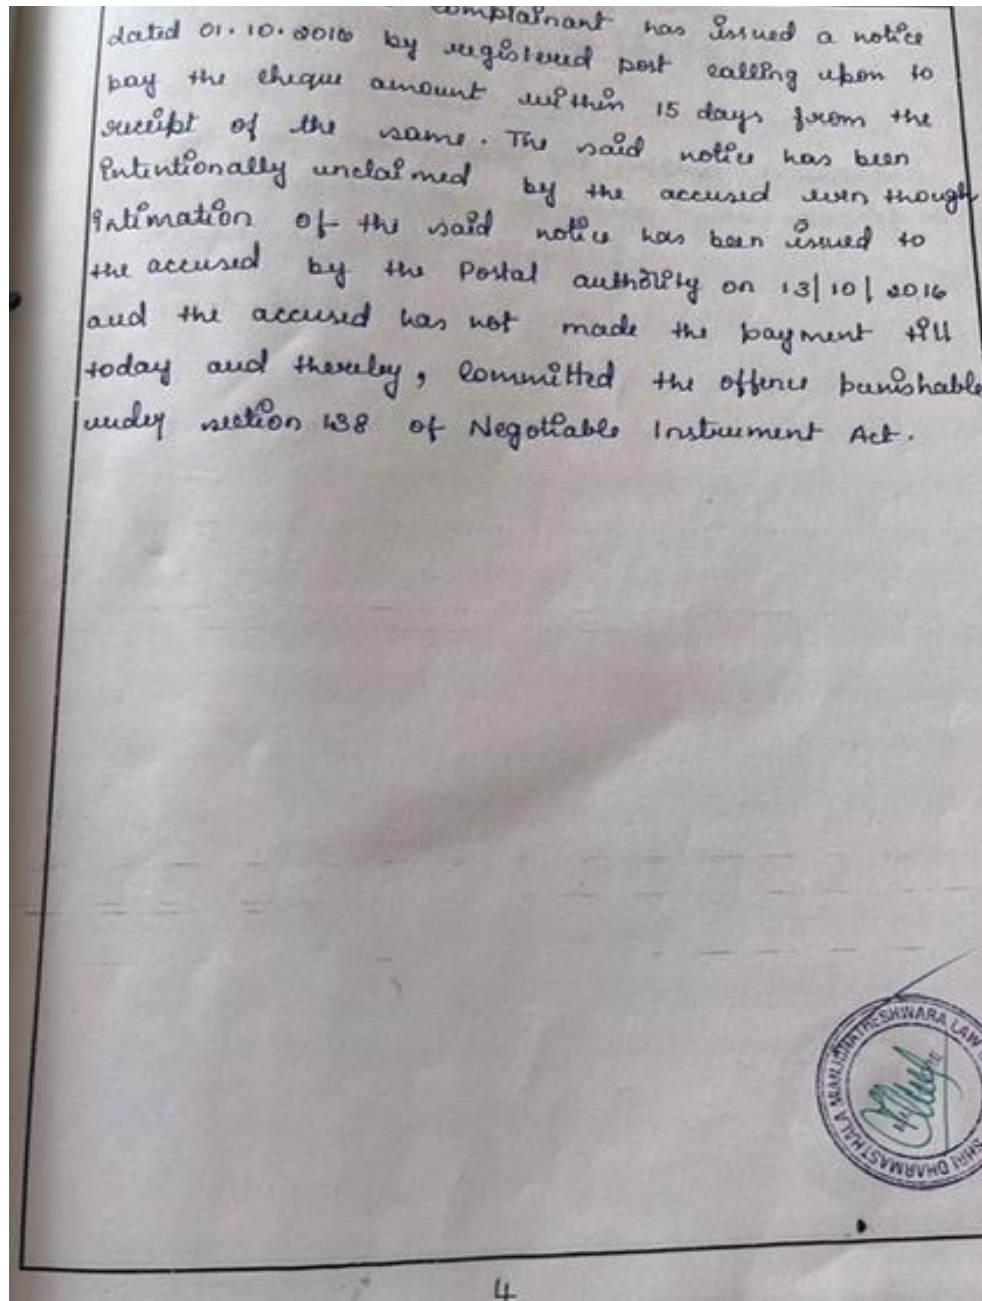 complainant has issued a notice
dated 01.10.2016 by registered post calling upon to
pay the cheque amount within 15 days from the
receipt of the same. The said notice has been
intentionally unclaimed by the accused even though
intimation of the said notice has been issued to
the accused by the Postal authority on 13/10/2016
and the accused has not made the payment till
today and thereby, Committed the offence punishable
under section 138 of Negotiable Instrument Act.
SHRI DHARMASTHALA MANJUNATHESHWARA LAW
4